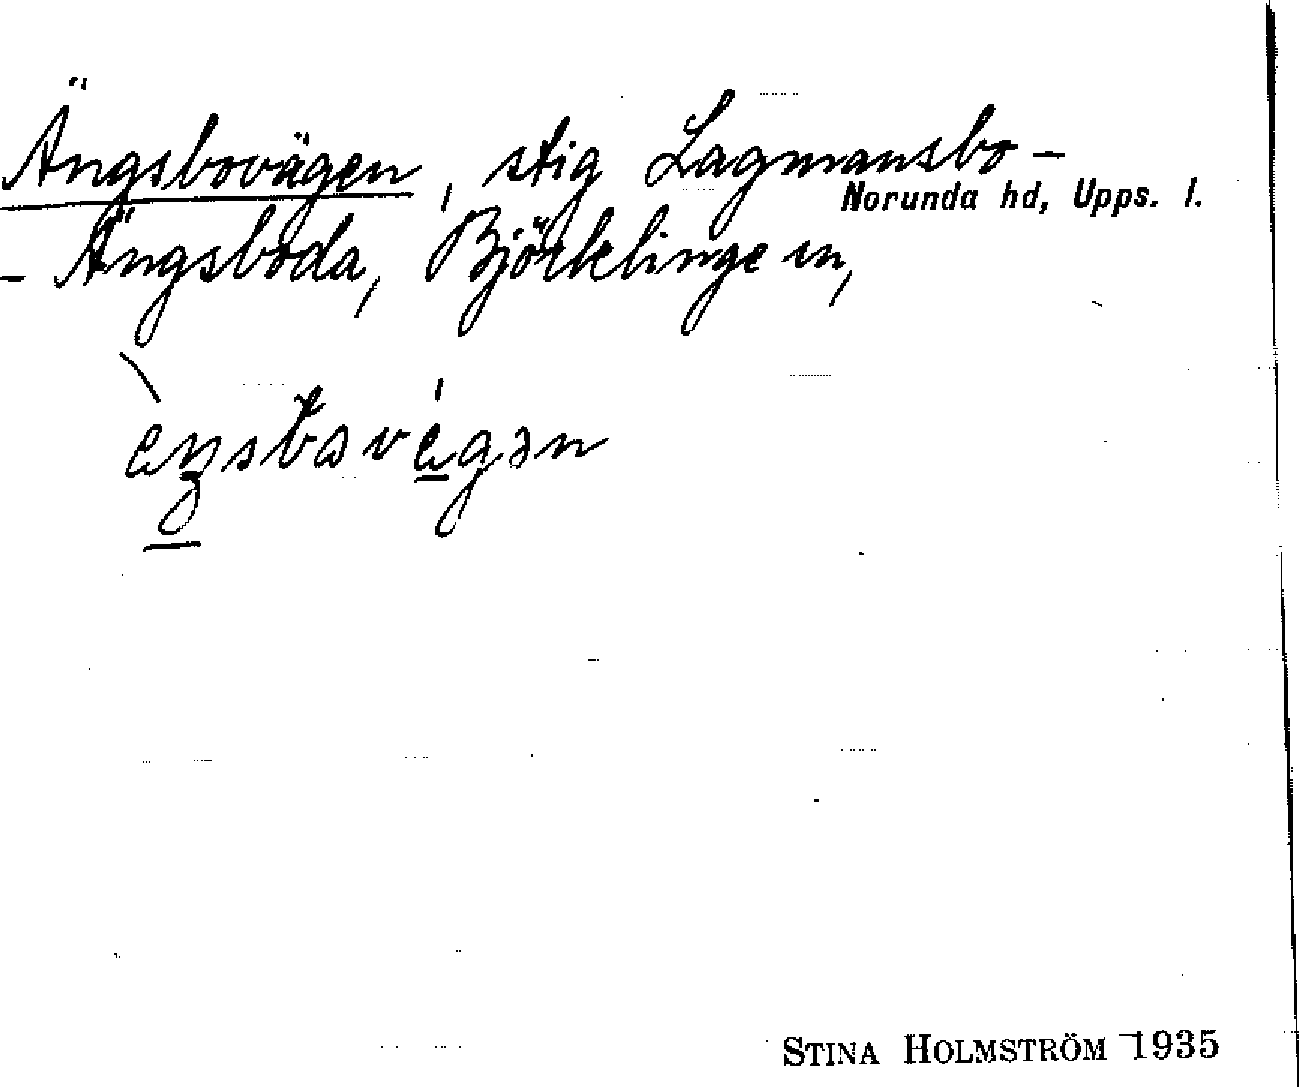 Ängsbovägen, stig Lagmansbo -
Norunda hd, Upps. l.
- Ängsboda, Björklinge sn,
STINA HOLMSTRÖM 1935